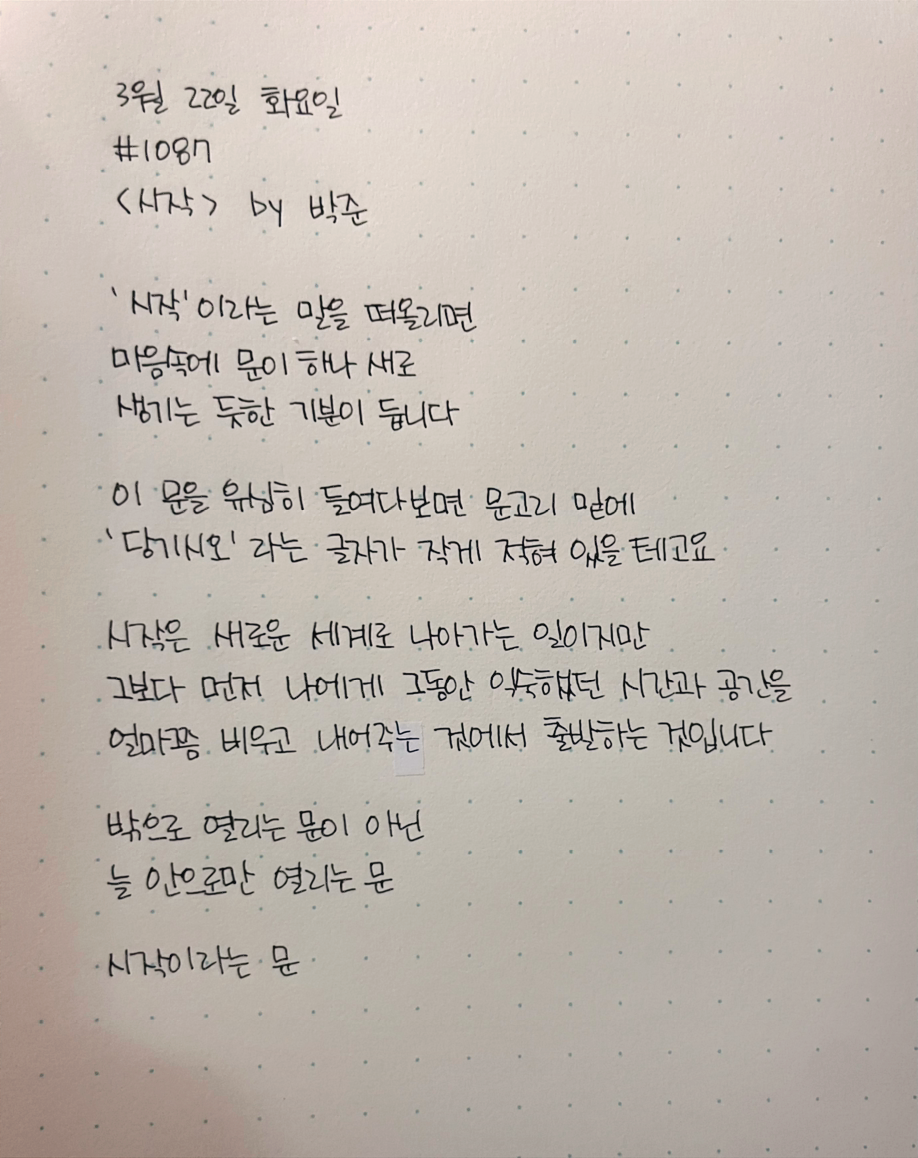 3월 22일 화요일
#1087
<시작> by 박준
'시작'이라는 말을 떠올리면
마음속에 문이 하나 새로
생기는 듯한 기분이 듭니다
이 문을 유심히 들여다보면 문고리 밑에
'당기시오'라는 글자가 작게 적혀 있을 테고요
시작은 새로운 세계로 나아가는 일이지만
그보다 먼저 나에게 그동안 익숙했던 시간과 공간을
얼마쯤 비우고 내어주는 것에서 출발하는 것입니다
밖으로 열리는 문이 아닌
늘 안으로만 열리는 문
시작이라는 문